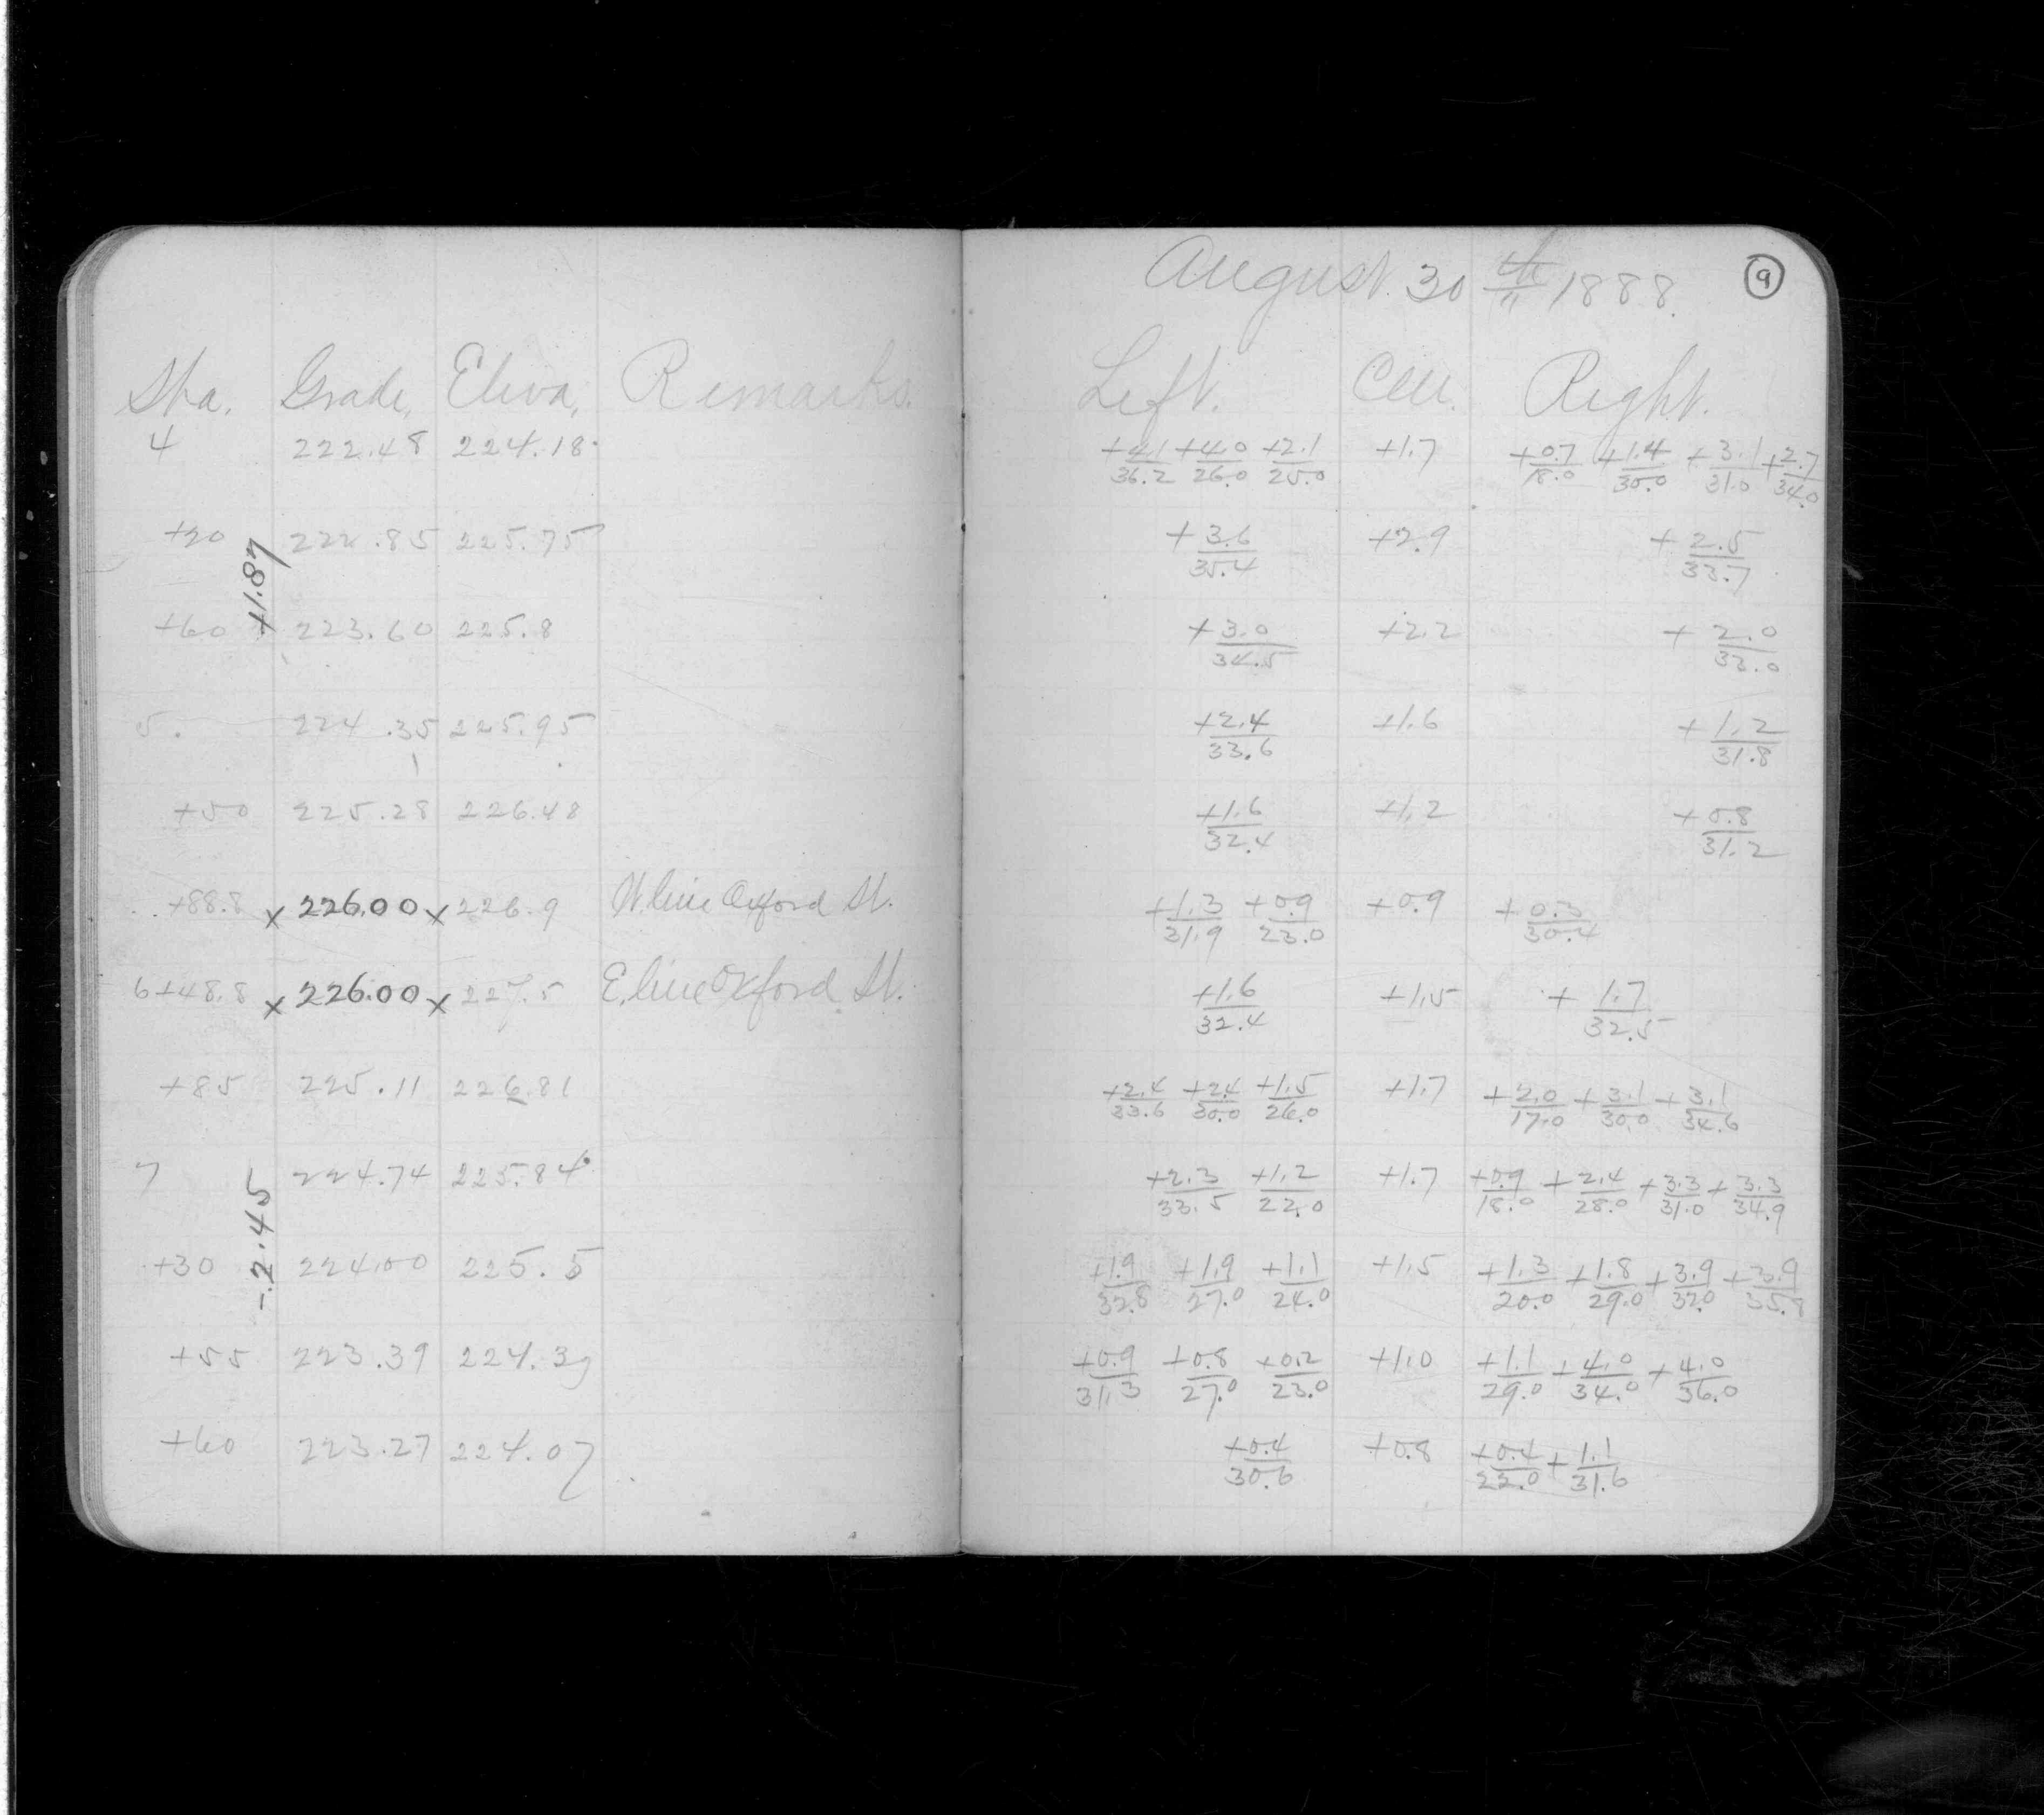 August 30th 1888. 9
Sta. Grade, Eleva, Remarks. Left. Cen. Right.
4 222.48 224.18 +4.1/36.2 +4.0/26.0 +2.1/25.0 +1.7 +0.7/18.0 +1.4/30.0 +3.1/31.0 +2.7/34.0
+20 222.85 225.75 +3.6/35.4 +2.9 +2.5/33.7
+1.87
+60 223.60 225.8 +3.0/34.5 +2.2 +2.0/33.0
5. 224.35 225.95 +2.4/33.6 +1.6 +1.2/31.8
+50 225.28 226.48 +1.6/32.4 +1.2 +0.8/31.2
+88.8 x 226.00 x 226.9 W. line Oxford St. +1.3/31.9 +0.9/23.0 +0.9 +0.3/30.4
6+48.8 x 226.00 x 227.5 E. line Oxford St. +1.6/32.4 +1.5 +1.7/32.5
+85 225.11 226.81 +2.4/33.6 +2.4/30.0 +1.5/26.0 +1.7 +2.0/17.0 +3.1/30.0 +3.1/34.6
7 224.74 225.84 +2.3/33.5 +1.2/22.0 +1.7 +0.9/18.0 +2.4/28.0 +3.3/31.0 +3.3/34.9
-.2.45
+30 224.00 225.5 +1.9/32.8 +1.9/27.0 +1.1/24.0 +1.5 +1.3/20.0 +1.8/29.0 +3.9/32.0 +3.9/35.8
+55 223.39 224.39 +0.9/31.3 +0.8/27.0 +0.2/23.0 +1.0 +1.1/29.0 +4.0/34.0 +4.0/36.0
+60 223.27 224.07 +0.4/30.6 +0.8 +0.4/22.0 +1.1/31.6